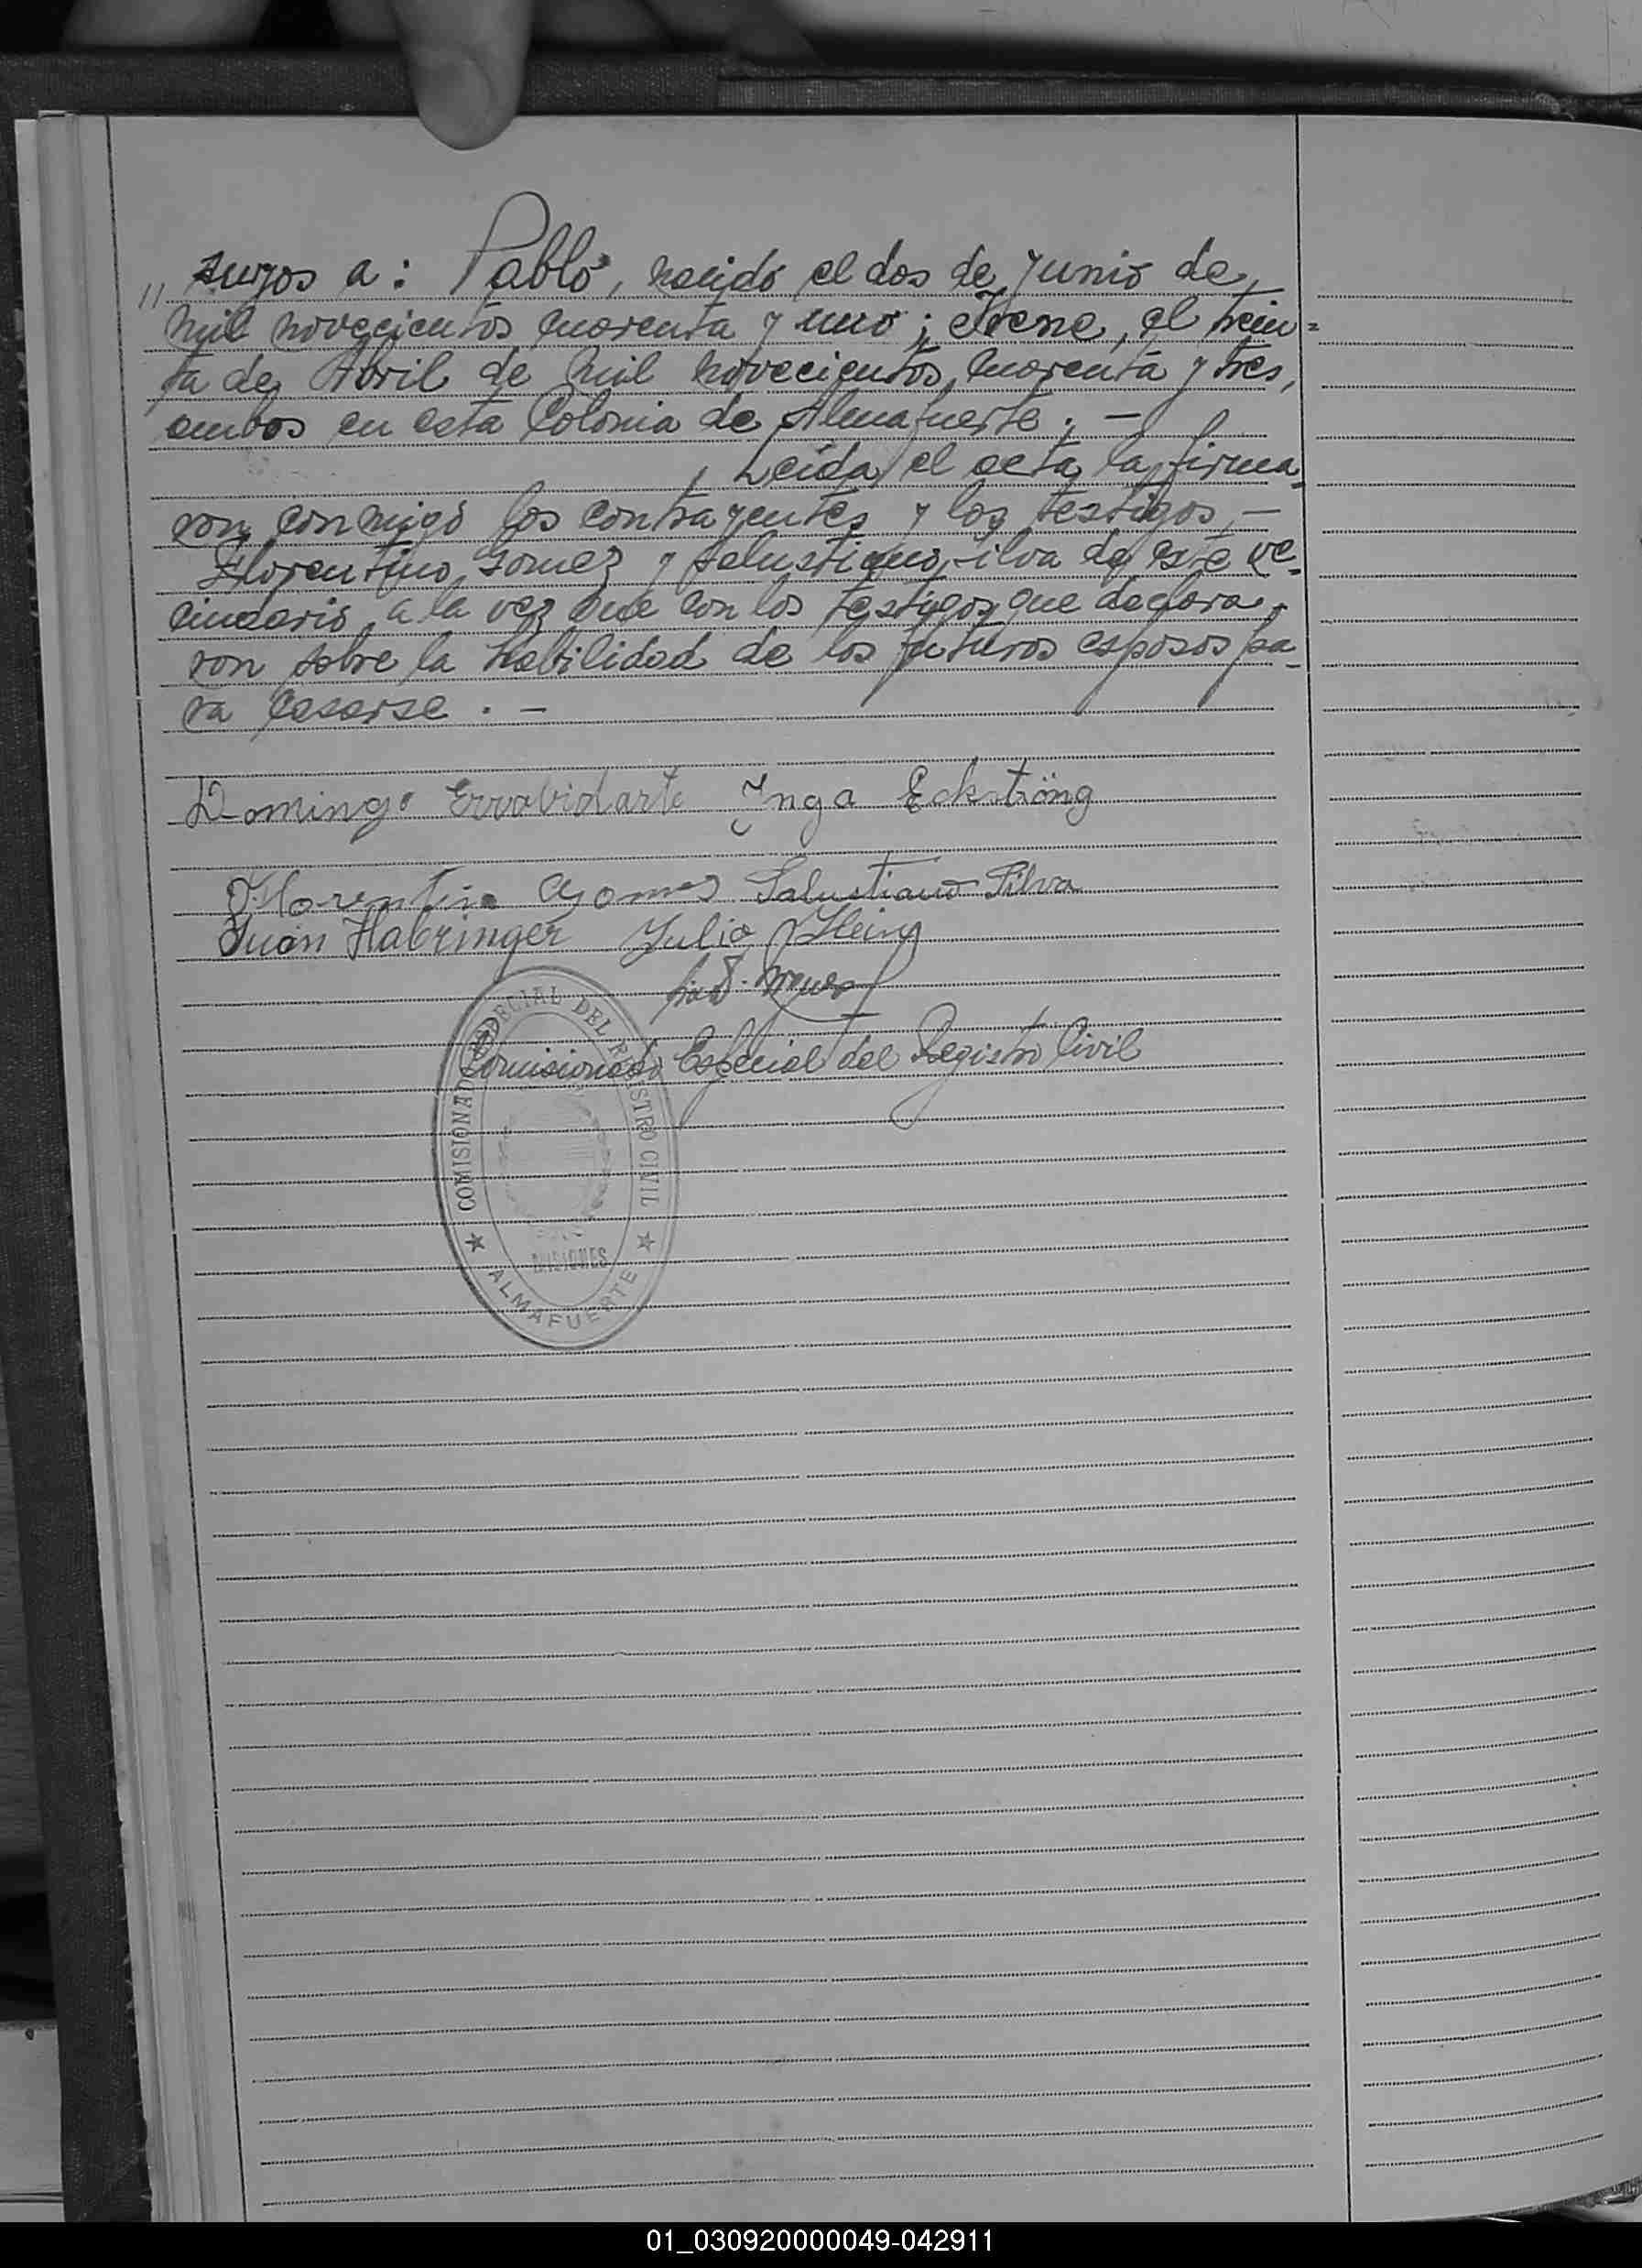 " suyos a: Pablo, nacido el dos de Junio de
mil novecientos cuarenta y uno; Irene, el trein=
ta de Abril de mil novecientos cuarenta y tres,
ambos en esta Colonia de Almafuerte. —
Leída el acta la firma-
ron conmigo los contrayentes y los testigos, —
Florentino Gomez y Salustiano Silva de este ve-
cindario a la vez que con los testigos que declara-
ron sobre la habilidad de los futuros esposos pa-
ra casarse. —
Domingo Errabidarte Inga Eckströng
Florentino Gomez Salustiano Silva
Juan Habringer Julio
Comisionado Especial del Registro Civil
COMISIONADO ESPECIAL DEL REGISTRO CIVIL
MISIONES
ALMAFUERTE
01_030920000049-042911